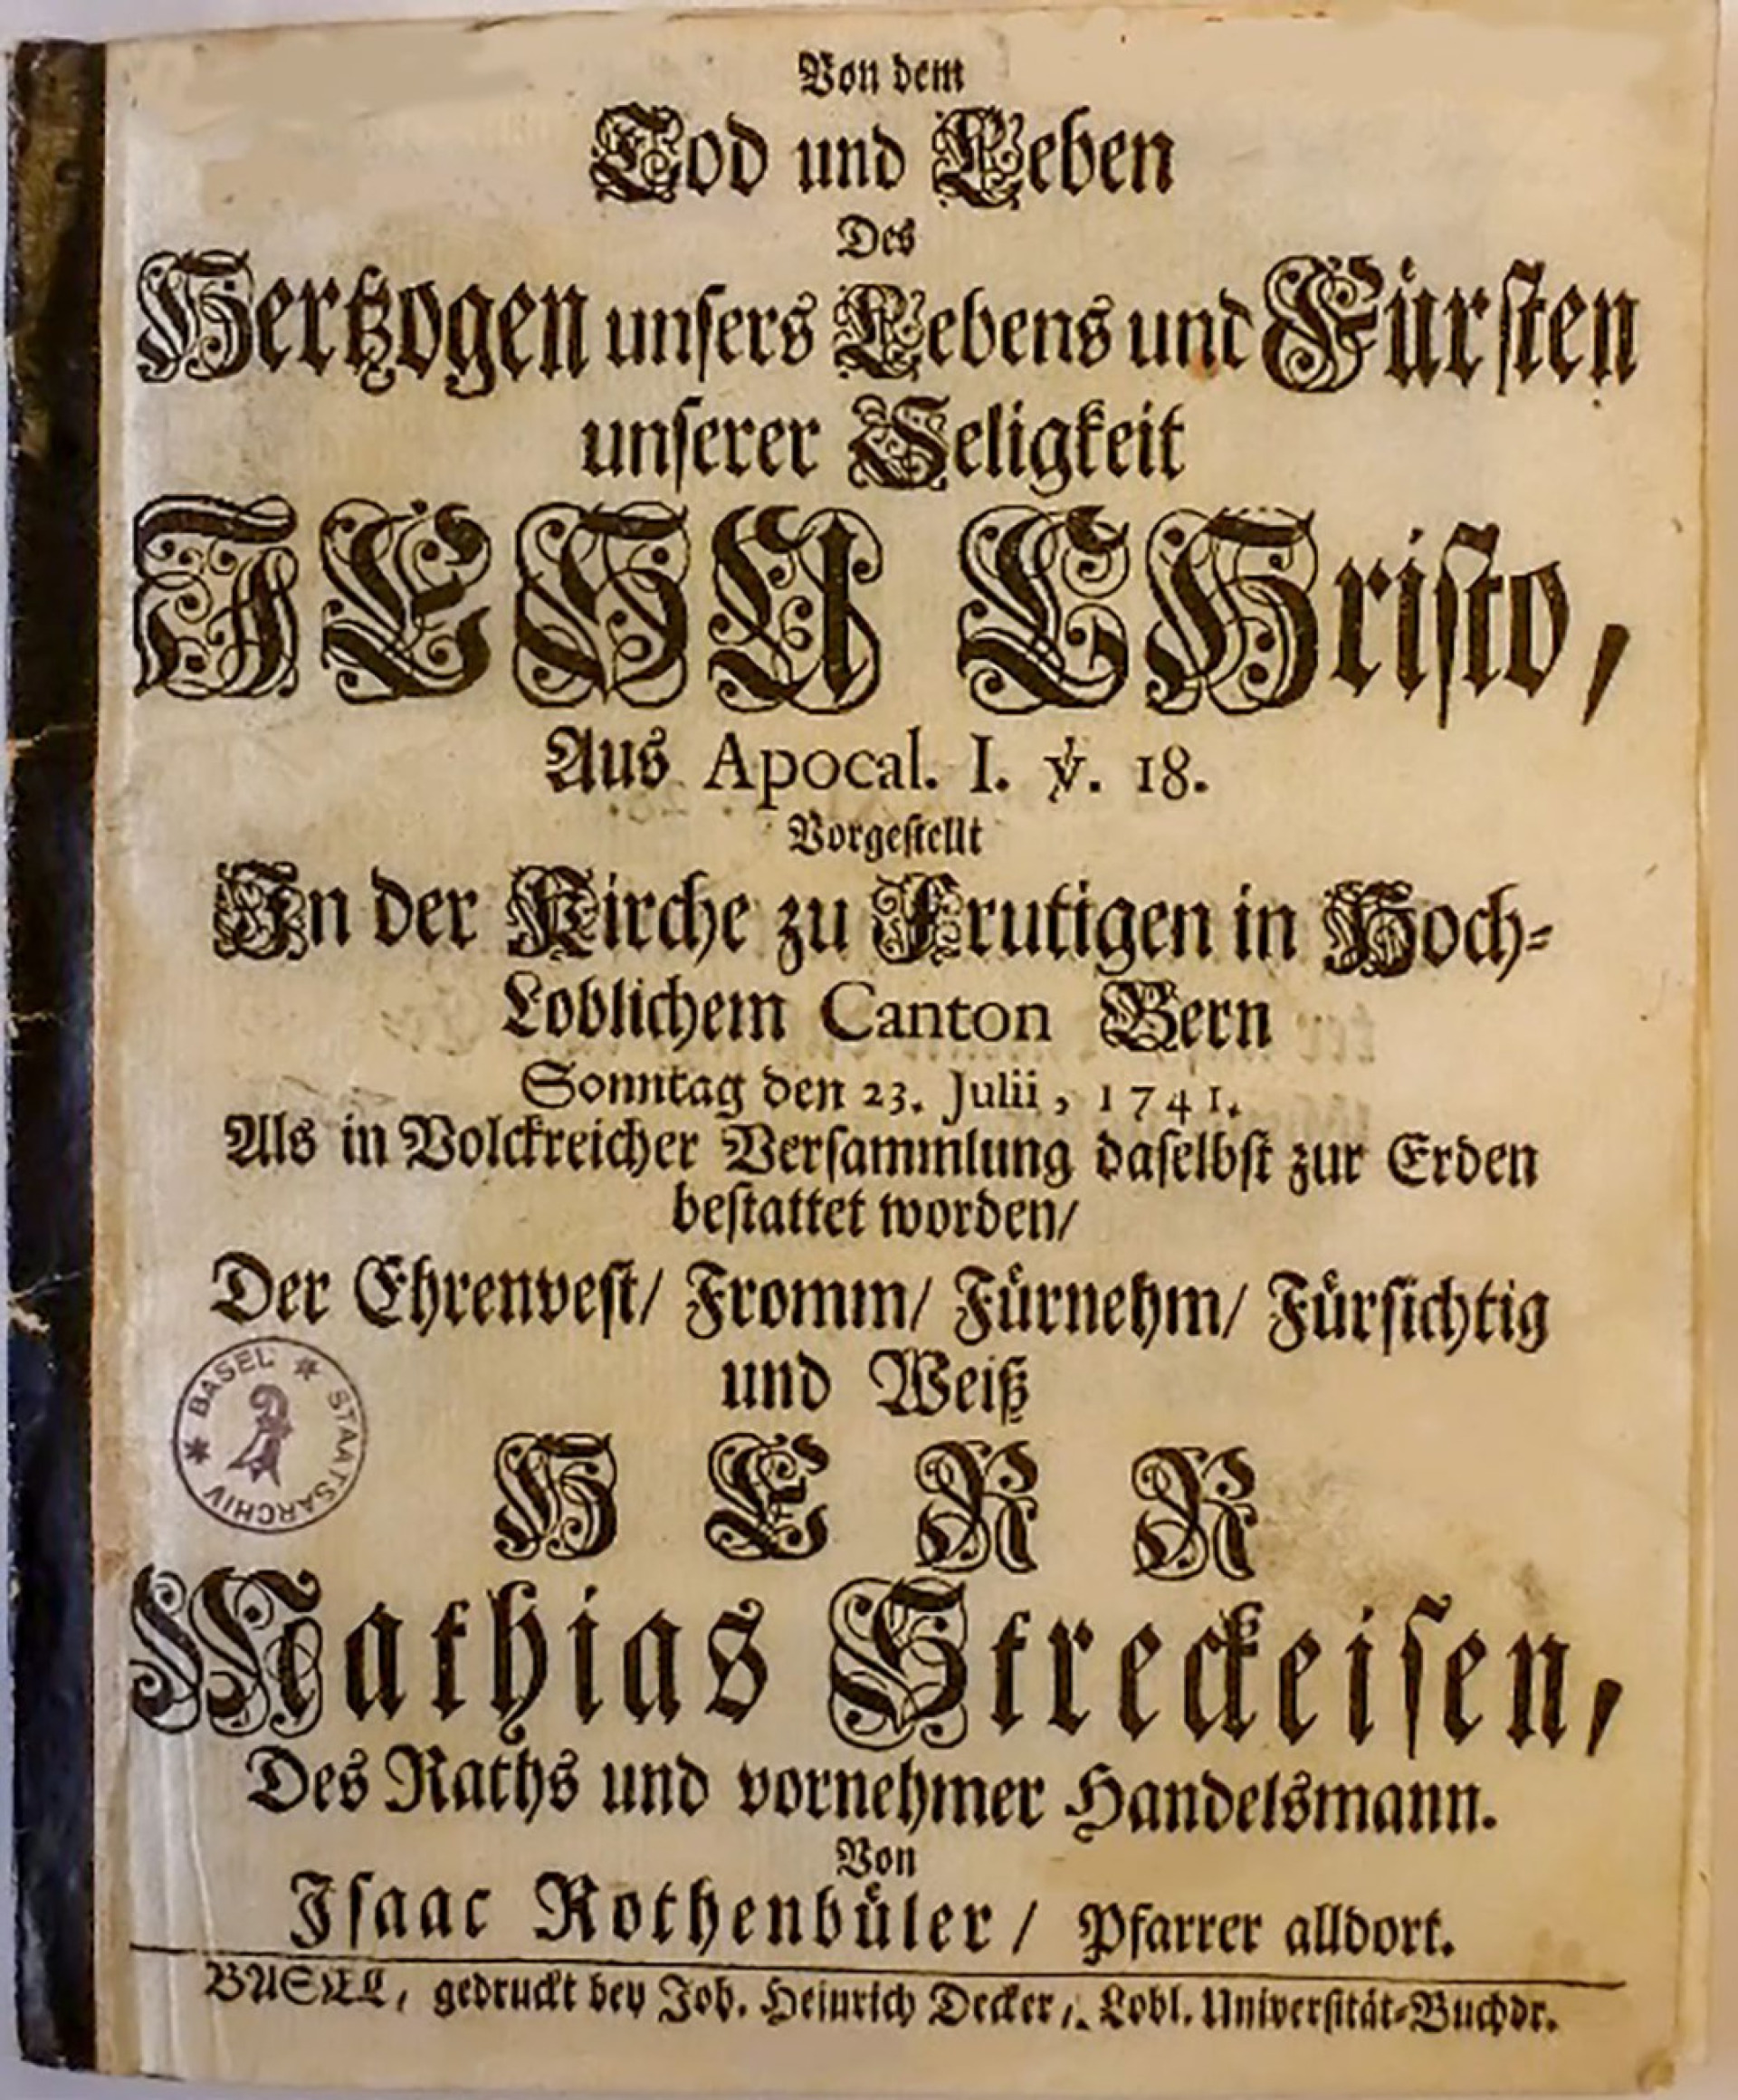 Von dem
Tod und Leben
Des
Hertzogen unsers Lebens und Fürsten
unserer Seligkeit
JESU CHristo,
Aus Apocal. I. ℣. 18.
Vorgestellt
In der Kirche zu Frutigen in Hoch-
Loblichem Canton Bern
Sonntag den 23. Julii, 1741.
Als in Volckreicher Versammlung daselbst zur Erden
bestattet worden/
Der Ehrenvest/ Fromm/ Fürnehm/ Fürsichtig
und Weiß
HERR
Mathias Streckeisen,
Des Raths und vornehmer Handelsmann.
Von
Isaac Rothenbüler/ Pfarrer alldort.
BASEL, gedruckt bey Joh. Heinrich Decker/. Lobl. Universität-Buchdr.
* BASEL * STAATSARCHIV